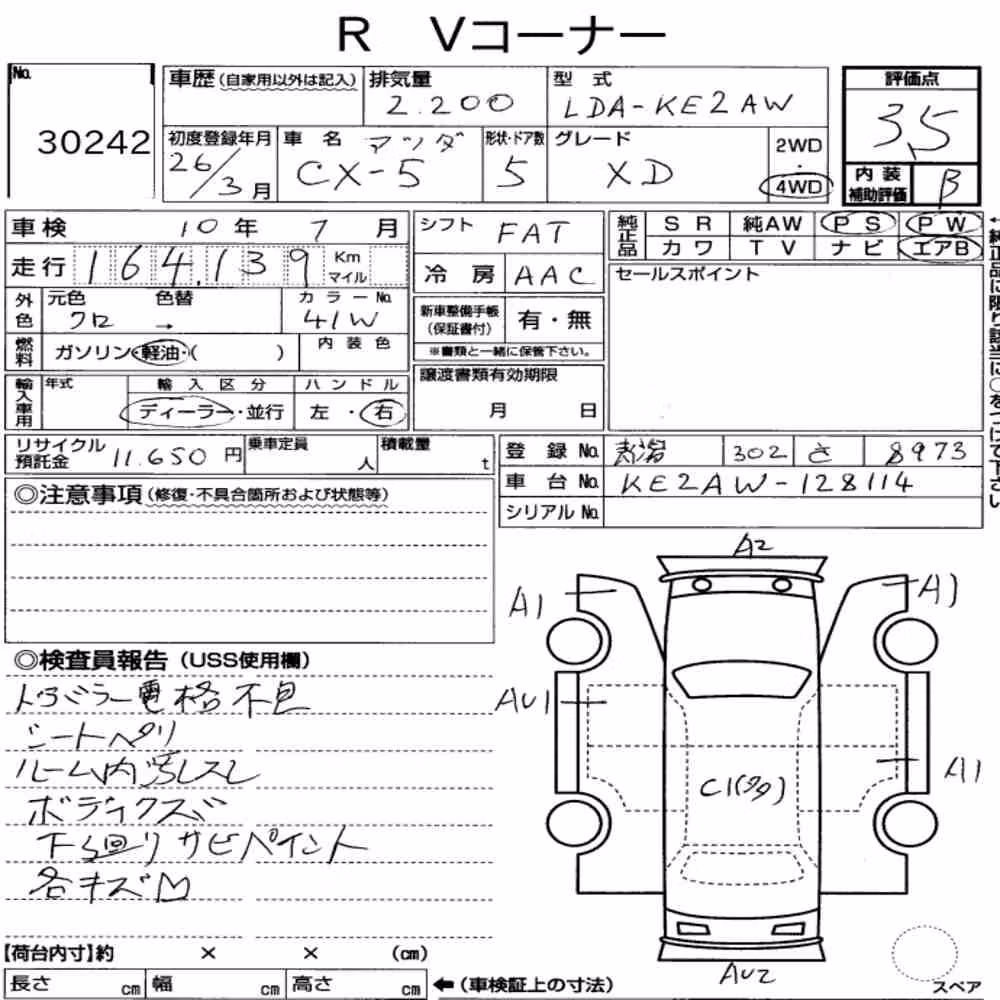 R Vコーナー
No. 30242
車歴(自家用以外は記入) 排気量 2.200 型式 LDA-KE2AW
初度登録年月 26/3月 車名 マツダ CX-5 形状・ドア数 5 グレード XD 2WD・4WD
評価点 3,5
内装補助評価 B
車検 10年 7月
走行 164,139 Km マイル
外色 元色 クロ 色替 → カラーNo. 41W
燃料 ガソリン・軽油・( ) 内装色
輸入車用 年式 輸入区分 ディーラー・並行 ハンドル 左・右
シフト FAT
冷房 AAC
新車整備手帳(保証書付) 有・無
※書類と一緒に保管下さい。
譲渡書類有効期限
月 日
純正品 SR 純AW PS PW
カワ TV ナビ エアB
セールスポイント
←純正品に限り該当に○をつけて下さい
リサイクル預託金 11.650円 乗車定員 人 積載量 t
登録No. 新潟 302 さ 8973
車台No. KE2AW-128114
シリアルNo.
◎注意事項(修復・不具合箇所および状態等)
◎検査員報告(USS使用欄)
シートヘリ
ルーム内汚レスレ
ボディクズ
下回リサビペイント
各キズ凹
A2
A1
A1
AU1
A1
C1(多)
AU2
スペア
【荷台内寸】約 × × (cm)
長さ cm 幅 cm 高さ cm ←(車検証上の寸法)